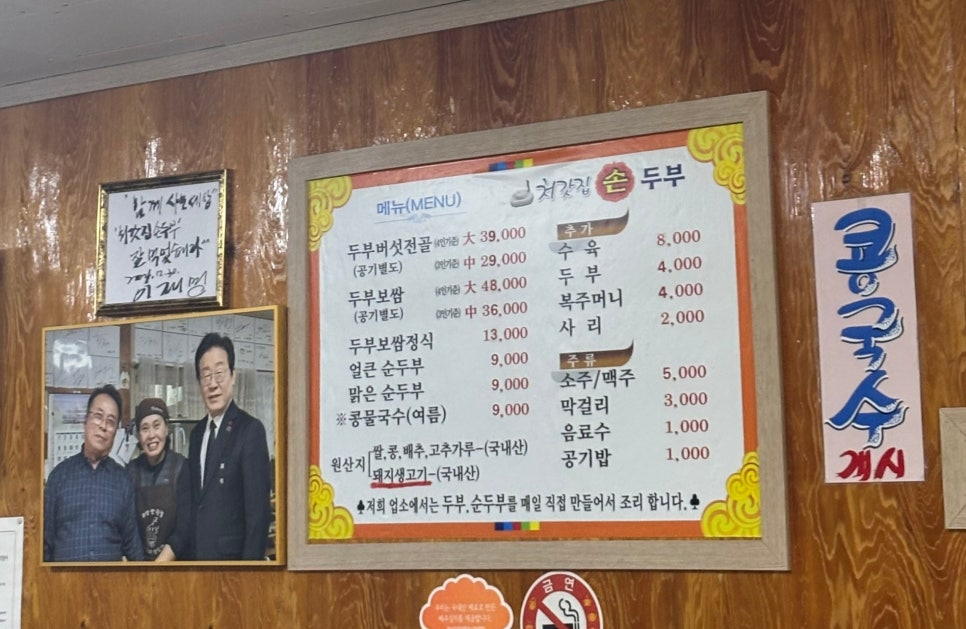 "함께 사는 세상"
"뒤깟집 손두부"
잘 먹었습니다"
이재명
메뉴(MENU)
뒤깟집 손두부
두부버섯전골 (4인기준) 大 39,000
(공기별도) (2인기준) 中 29,000
두부보쌈 (4인기준) 大 48,000
(공기별도) (2인기준) 中 36,000
두부보쌈정식 13,000
얼큰 순두부 9,000
맑은 순두부 9,000
※콩물국수(여름) 9,000
추가
수육 8,000
두부 4,000
복주머니 4,000
사리 2,000
주류
소주/맥주 5,000
막걸리 3,000
음료수 1,000
공기밥 1,000
원산지
쌀,콩,배추,고추가루-(국내산)
돼지생고기-(국내산)
♣저희 업소에서는 두부,순두부를 매일 직접 만들어서 조리 합니다.♣
콩국수
개시
금연